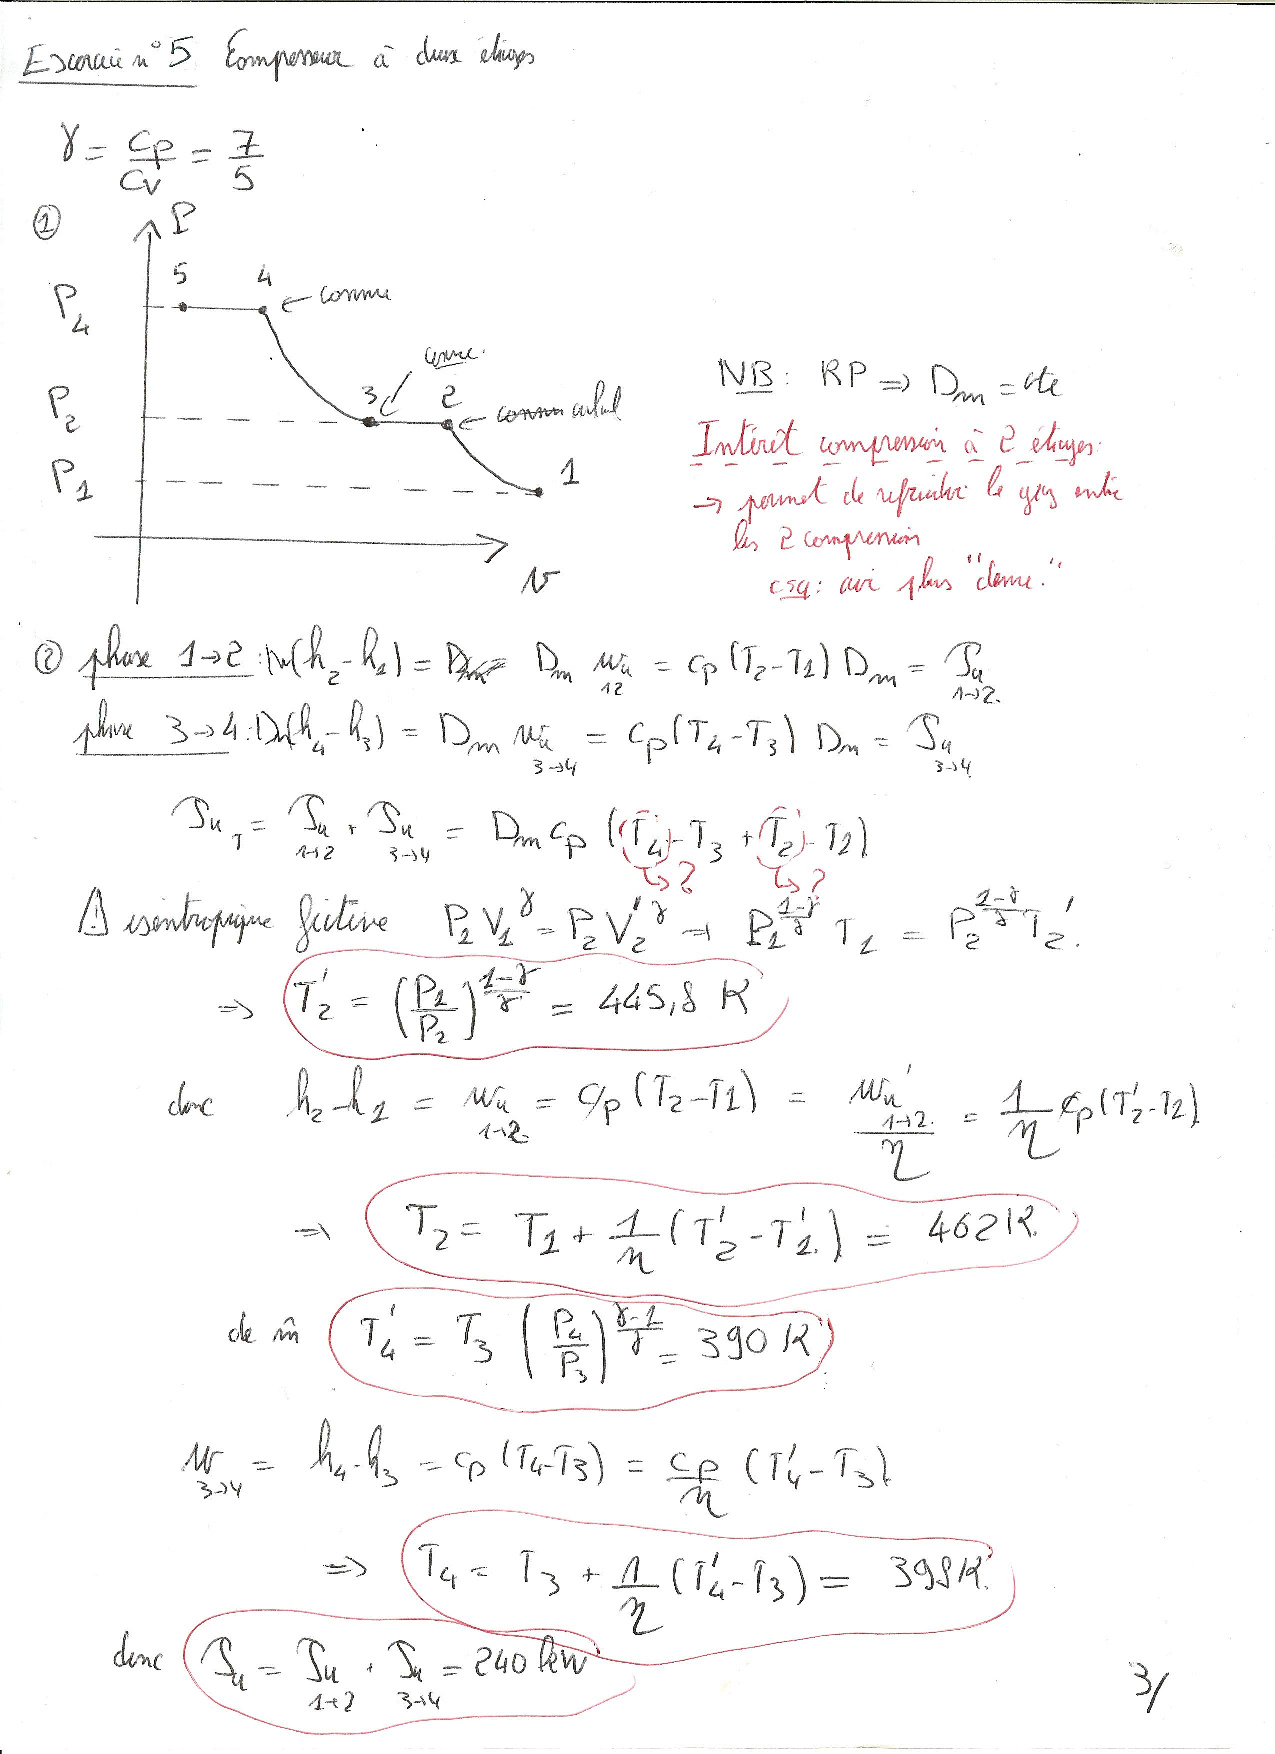 Exercice n°5 Compresseur à deux étages
γ = cp/cv = 7/5
① P
5 4
P4 ← connu
connu.
3 2
P2 ← connu calcul
P1 1
v
NB : RP ⇒ Dm = cte
Intérêt compression à 2 étages :
→ permet de refroidir le gaz entre
les 2 compression
csq : air plus "dense."
② phase 1→2 : Dm(h2-h1) = Dm = Dm wu 12 = cp (T2-T1) Dm = Pu 1→2.
phase 3→4 : Dm(h4-h3) = Dm wu 3→4 = cp(T4-T3) Dm = Pu 3→4
Pu T = Pu 1→2 + Pu 3→4 = Dm cp (T4 - T3 + T2 - T1)
↳ ? ↳ ?
Δ isentropique fictive P1 V1^γ = P2 V2'^γ → P1^((1-γ)/γ) T1 = P2^((1-γ)/γ) T2'.
⇒ T2' = (P1/P2)^((1-γ)/γ) = 445,8 K
donc h2-h1 = wu 1→2 = cp (T2-T1) = wu' 1→2./η = 1/η cp (T2'-T1)
⇒ T2 = T1 + 1/η (T2' - T1'.) = 462 K.
de m̂ T4' = T3 (P4/P3)^((γ-1)/γ) = 390 K
w 3→4 = h4-h3 = cp (T4-T3) = cp/η (T4' - T3)
⇒ T4 = T3 + 1/η (T4' - T3) = 398 K.
donc Pu = Pu 1→2 + Pu 3→4 = 240 kW
3/